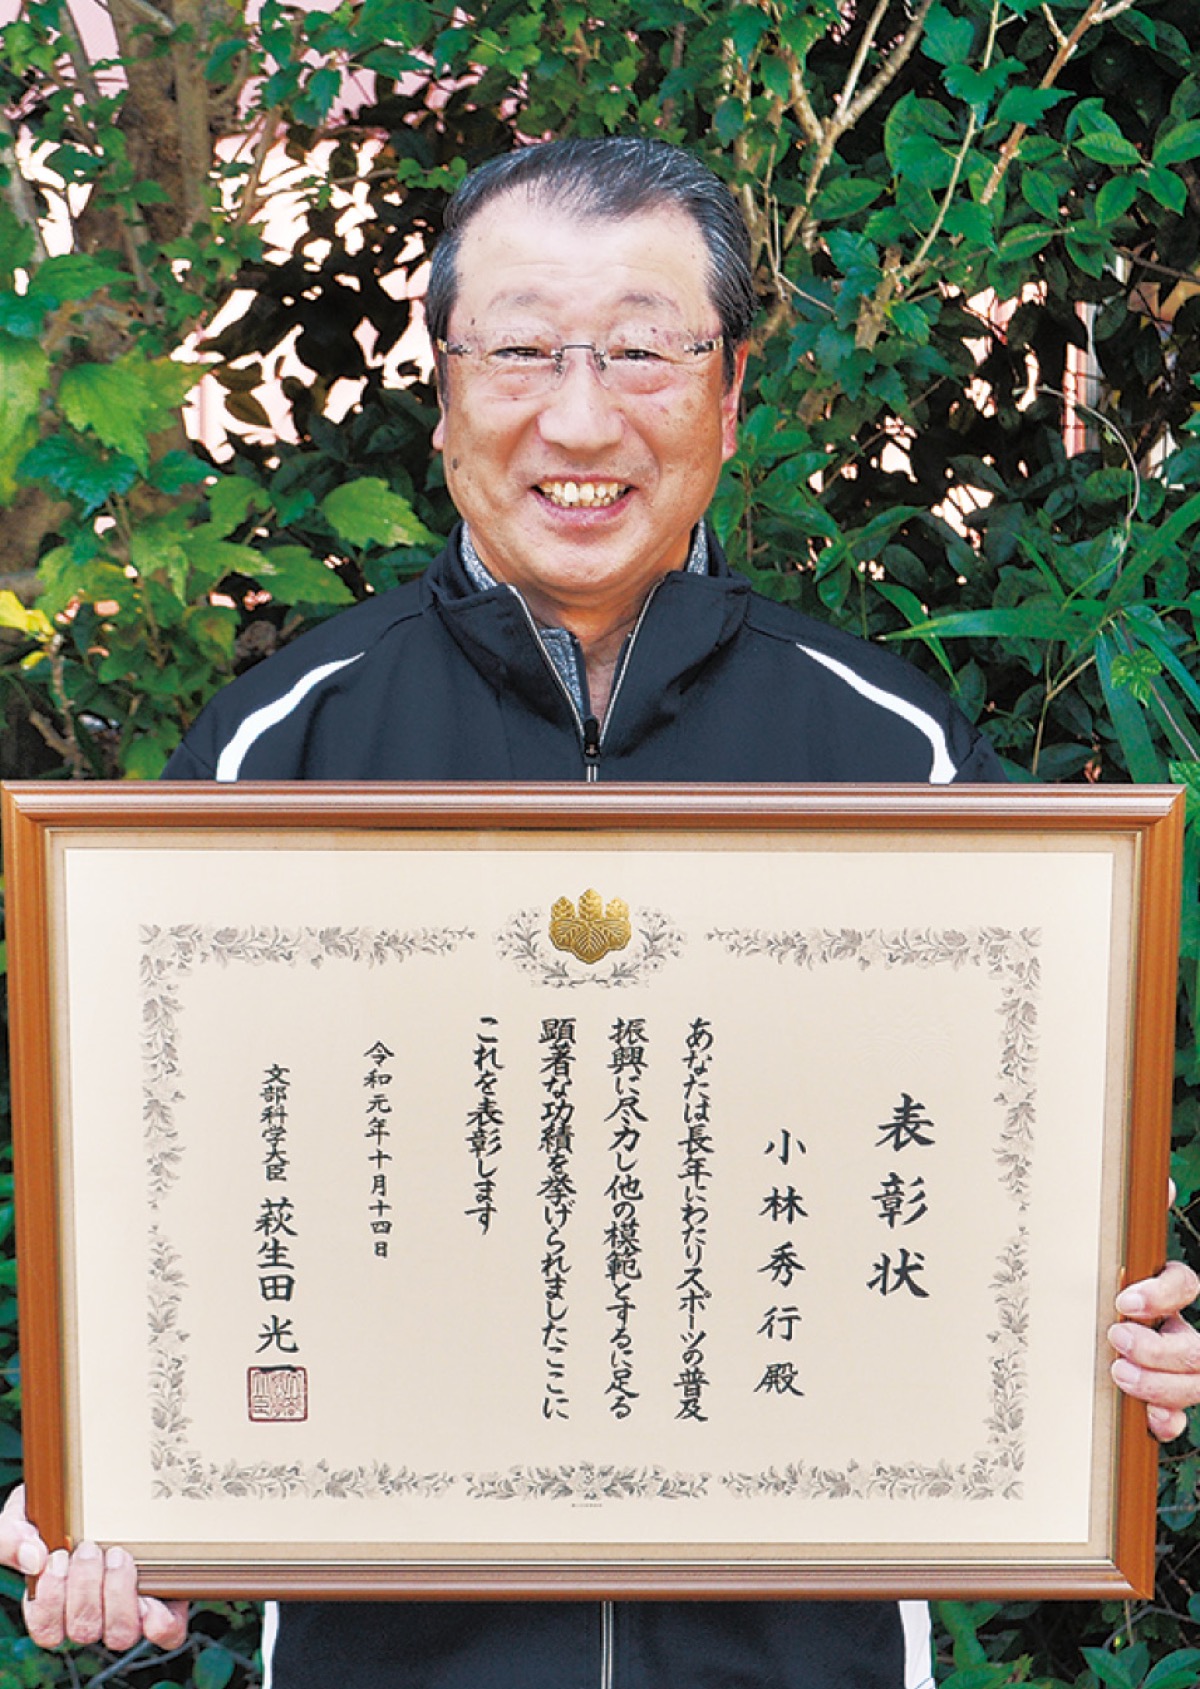 表彰状
小林秀行殿
あなたは長年にわたりスポーツの普及
振興に尽力し他の模範とするに足る
顕著な功績を挙げられましたここに
これを表彰します
令和元年十月十四日
文部科学大臣 萩生田光一